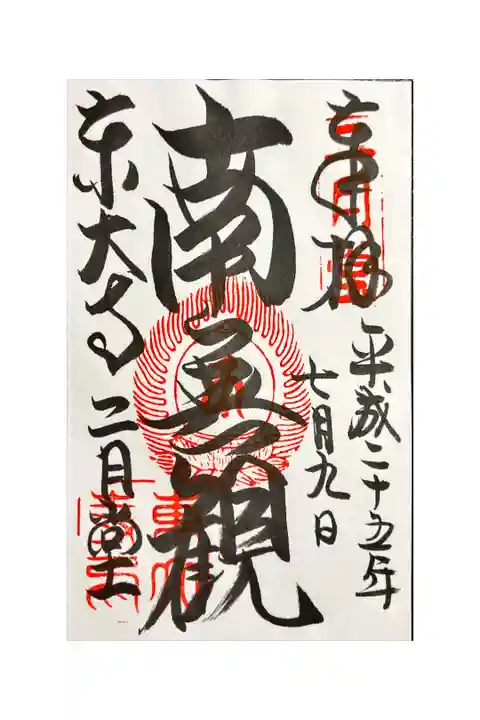 奉拝
平成二十五年
七月九日
南無観
東大寺二月堂